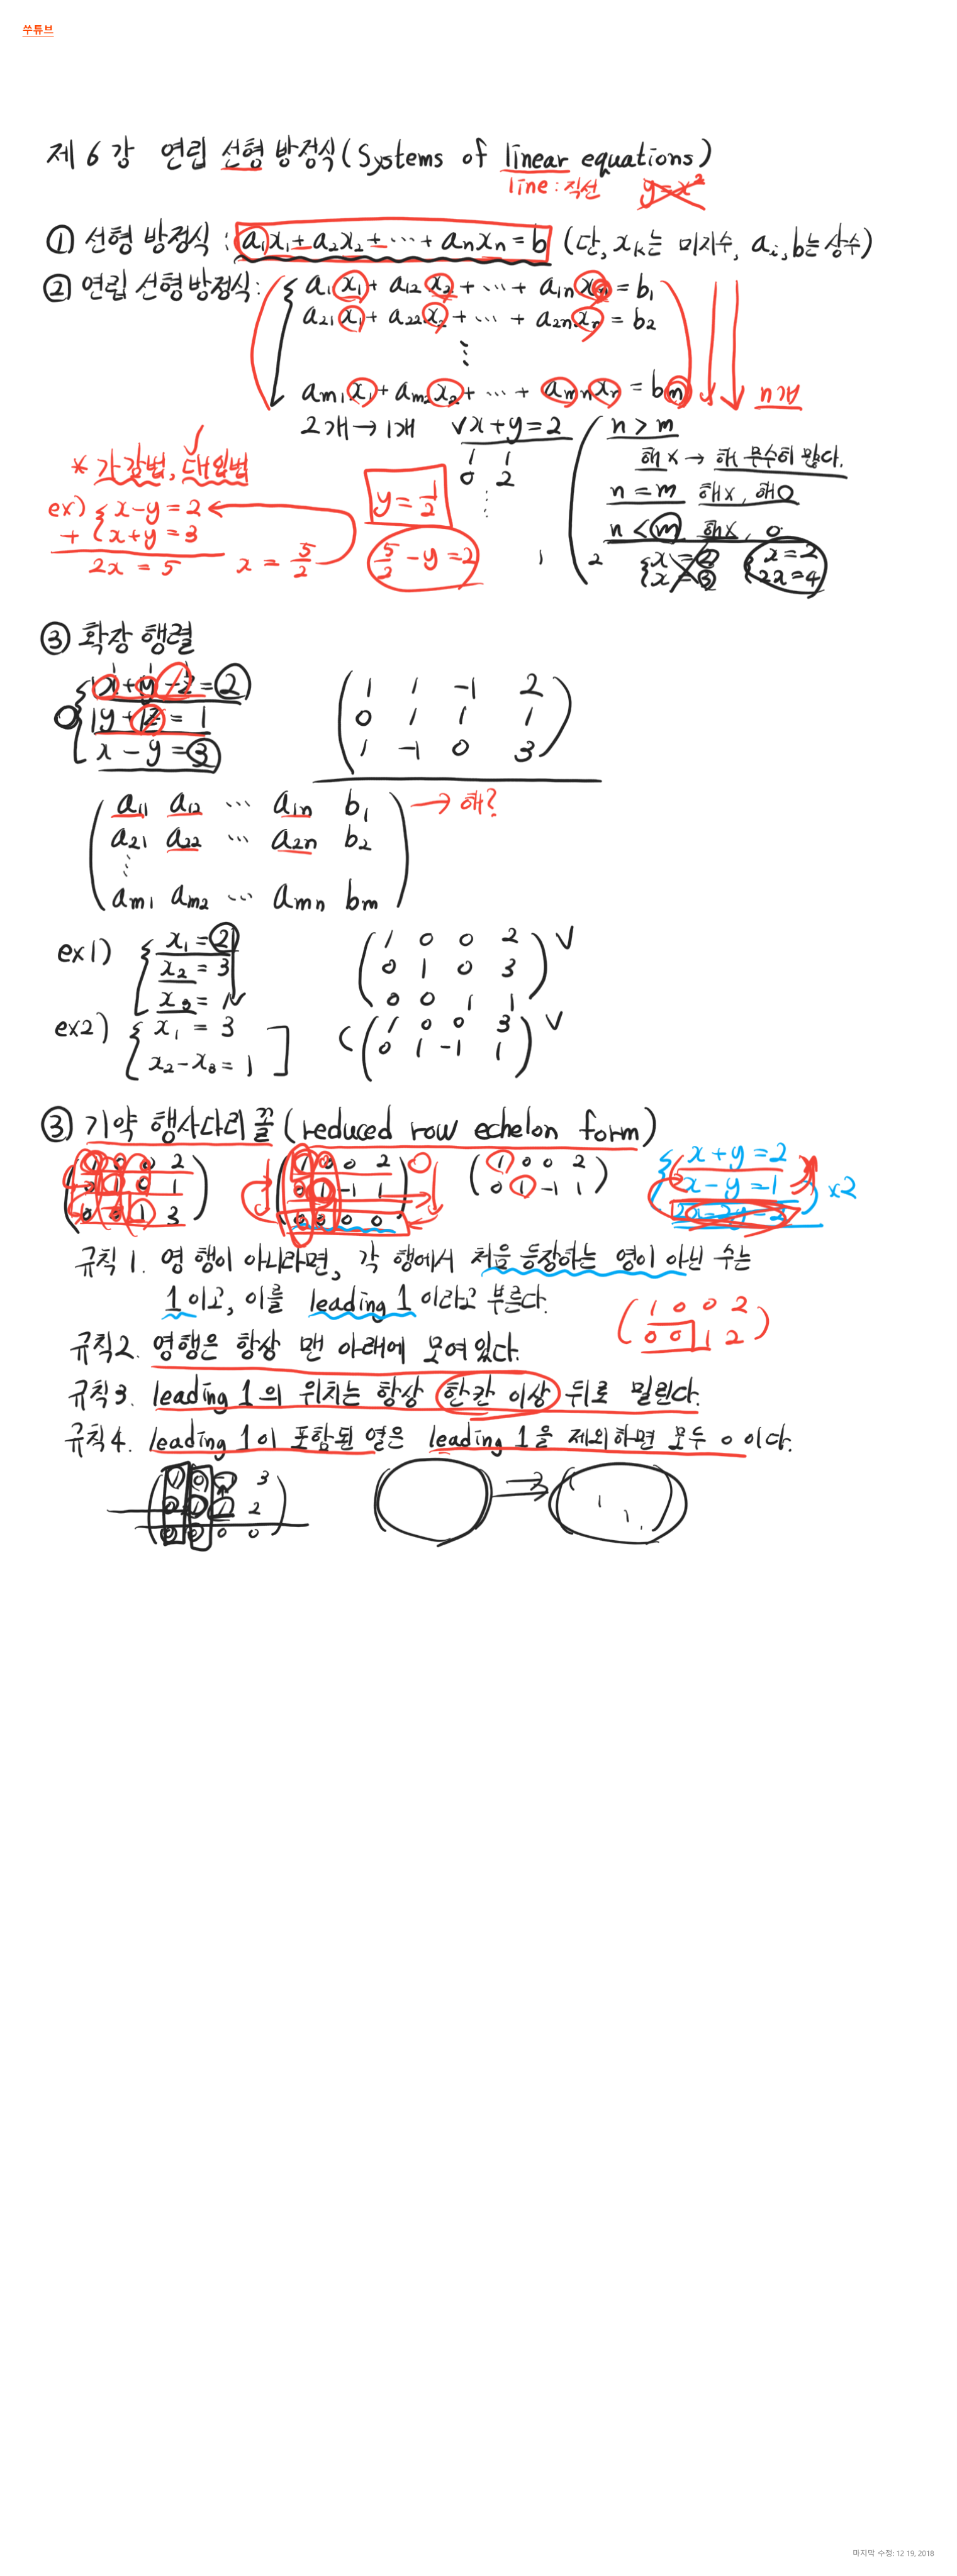 쑤튜브
제 6 강 연립 선형 방정식 (Systems of linear equations)
line : 직선 y = x²
① 선형 방정식 : a₁x₁ + a₂x₂ + ⋯ + aₙxₙ = b (단, xₖ는 미지수, aᵢ, b는 상수)
② 연립 선형 방정식 :
a₁ x₁ + a₁₂ x₂ + ⋯ + a₁ₙ xₙ = b₁
a₂₁ x₁ + a₂₂ x₂ + ⋯ + a₂ₙ xₙ = b₂
⋮
aₘ₁ x₁ + aₘ₂ x₂ + ⋯ + aₘₙ xₙ = bₘ
n개
2개 → 1개 √x + y = 2
1 1
0 2
⋮
n > m
해 x → 해 무수히 많다.
n = m 해x, 해O
n < m 해x, o
1 2
x = 2
x = 3
x = 2
2x = 4
* 가감법, 대입법
ex) x - y = 2
+ x + y = 3
2x = 5 x = 5/2
y = 1/2
5/2 - y = 2
③ 확장 행렬
1x + y - z = 2
0 1y + 1z = 1
x - y = 3
1 1 -1 2
0 1 1 1
1 -1 0 3
a₁₁ a₁₂ ⋯ a₁ₙ b₁ → 해?
a₂₁ a₂₂ ⋯ a₂ₙ b₂
⋮
aₘ₁ aₘ₂ ⋯ aₘₙ bₘ
ex1) x₁ = 2
x₂ = 3
x₃ = 1
1 0 0 2
0 1 0 3
0 0 1 1
ex2) x₁ = 3
x₂ - x₃ = 1
1 0 0 3
0 1 -1 1
③ 기약 행사다리꼴 (reduced row echelon form)
1 0 0 2
0 1 0 1
0 0 1 3
1 0 0 2
0 1 -1 1
0 0 0 0
1 0 0 2
0 1 -1 1
x + y = 2
x - y = 1
2x - 2y = 2
x2
규칙 1. 영 행이 아니라면, 각 행에서 처음 등장하는 영이 아닌 수는
1 이고, 이를 leading 1 이라고 부른다.
1 0 0 2
0 0 1 2
규칙2. 영행은 항상 맨 아래에 모여있다.
규칙3. leading 1의 위치는 항상 한칸 이상 뒤로 밀린다.
규칙4. leading 1이 포함된 열은 leading 1을 제외하면 모두 0 이다.
3
2
0 0 0 0
1
1
마지막 수정: 12 19, 2018